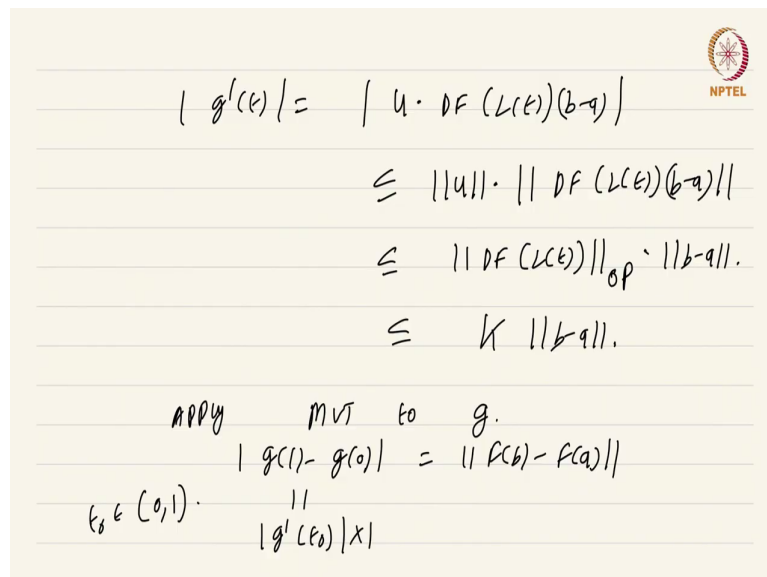 NPTEL
| g'(t) | = | u · DF (L(t))(b-a) |
≤ ||u|| · || DF (L(t))(b-a) ||
≤ || DF (L(t)) ||op · ||b-a||.
≤ K ||b-a||.
APPLY MVT to g.
| g(1) - g(0) | = || F(b) - F(a) ||
t₀ ∈ (0,1). ||
| g' (t₀) | × 1